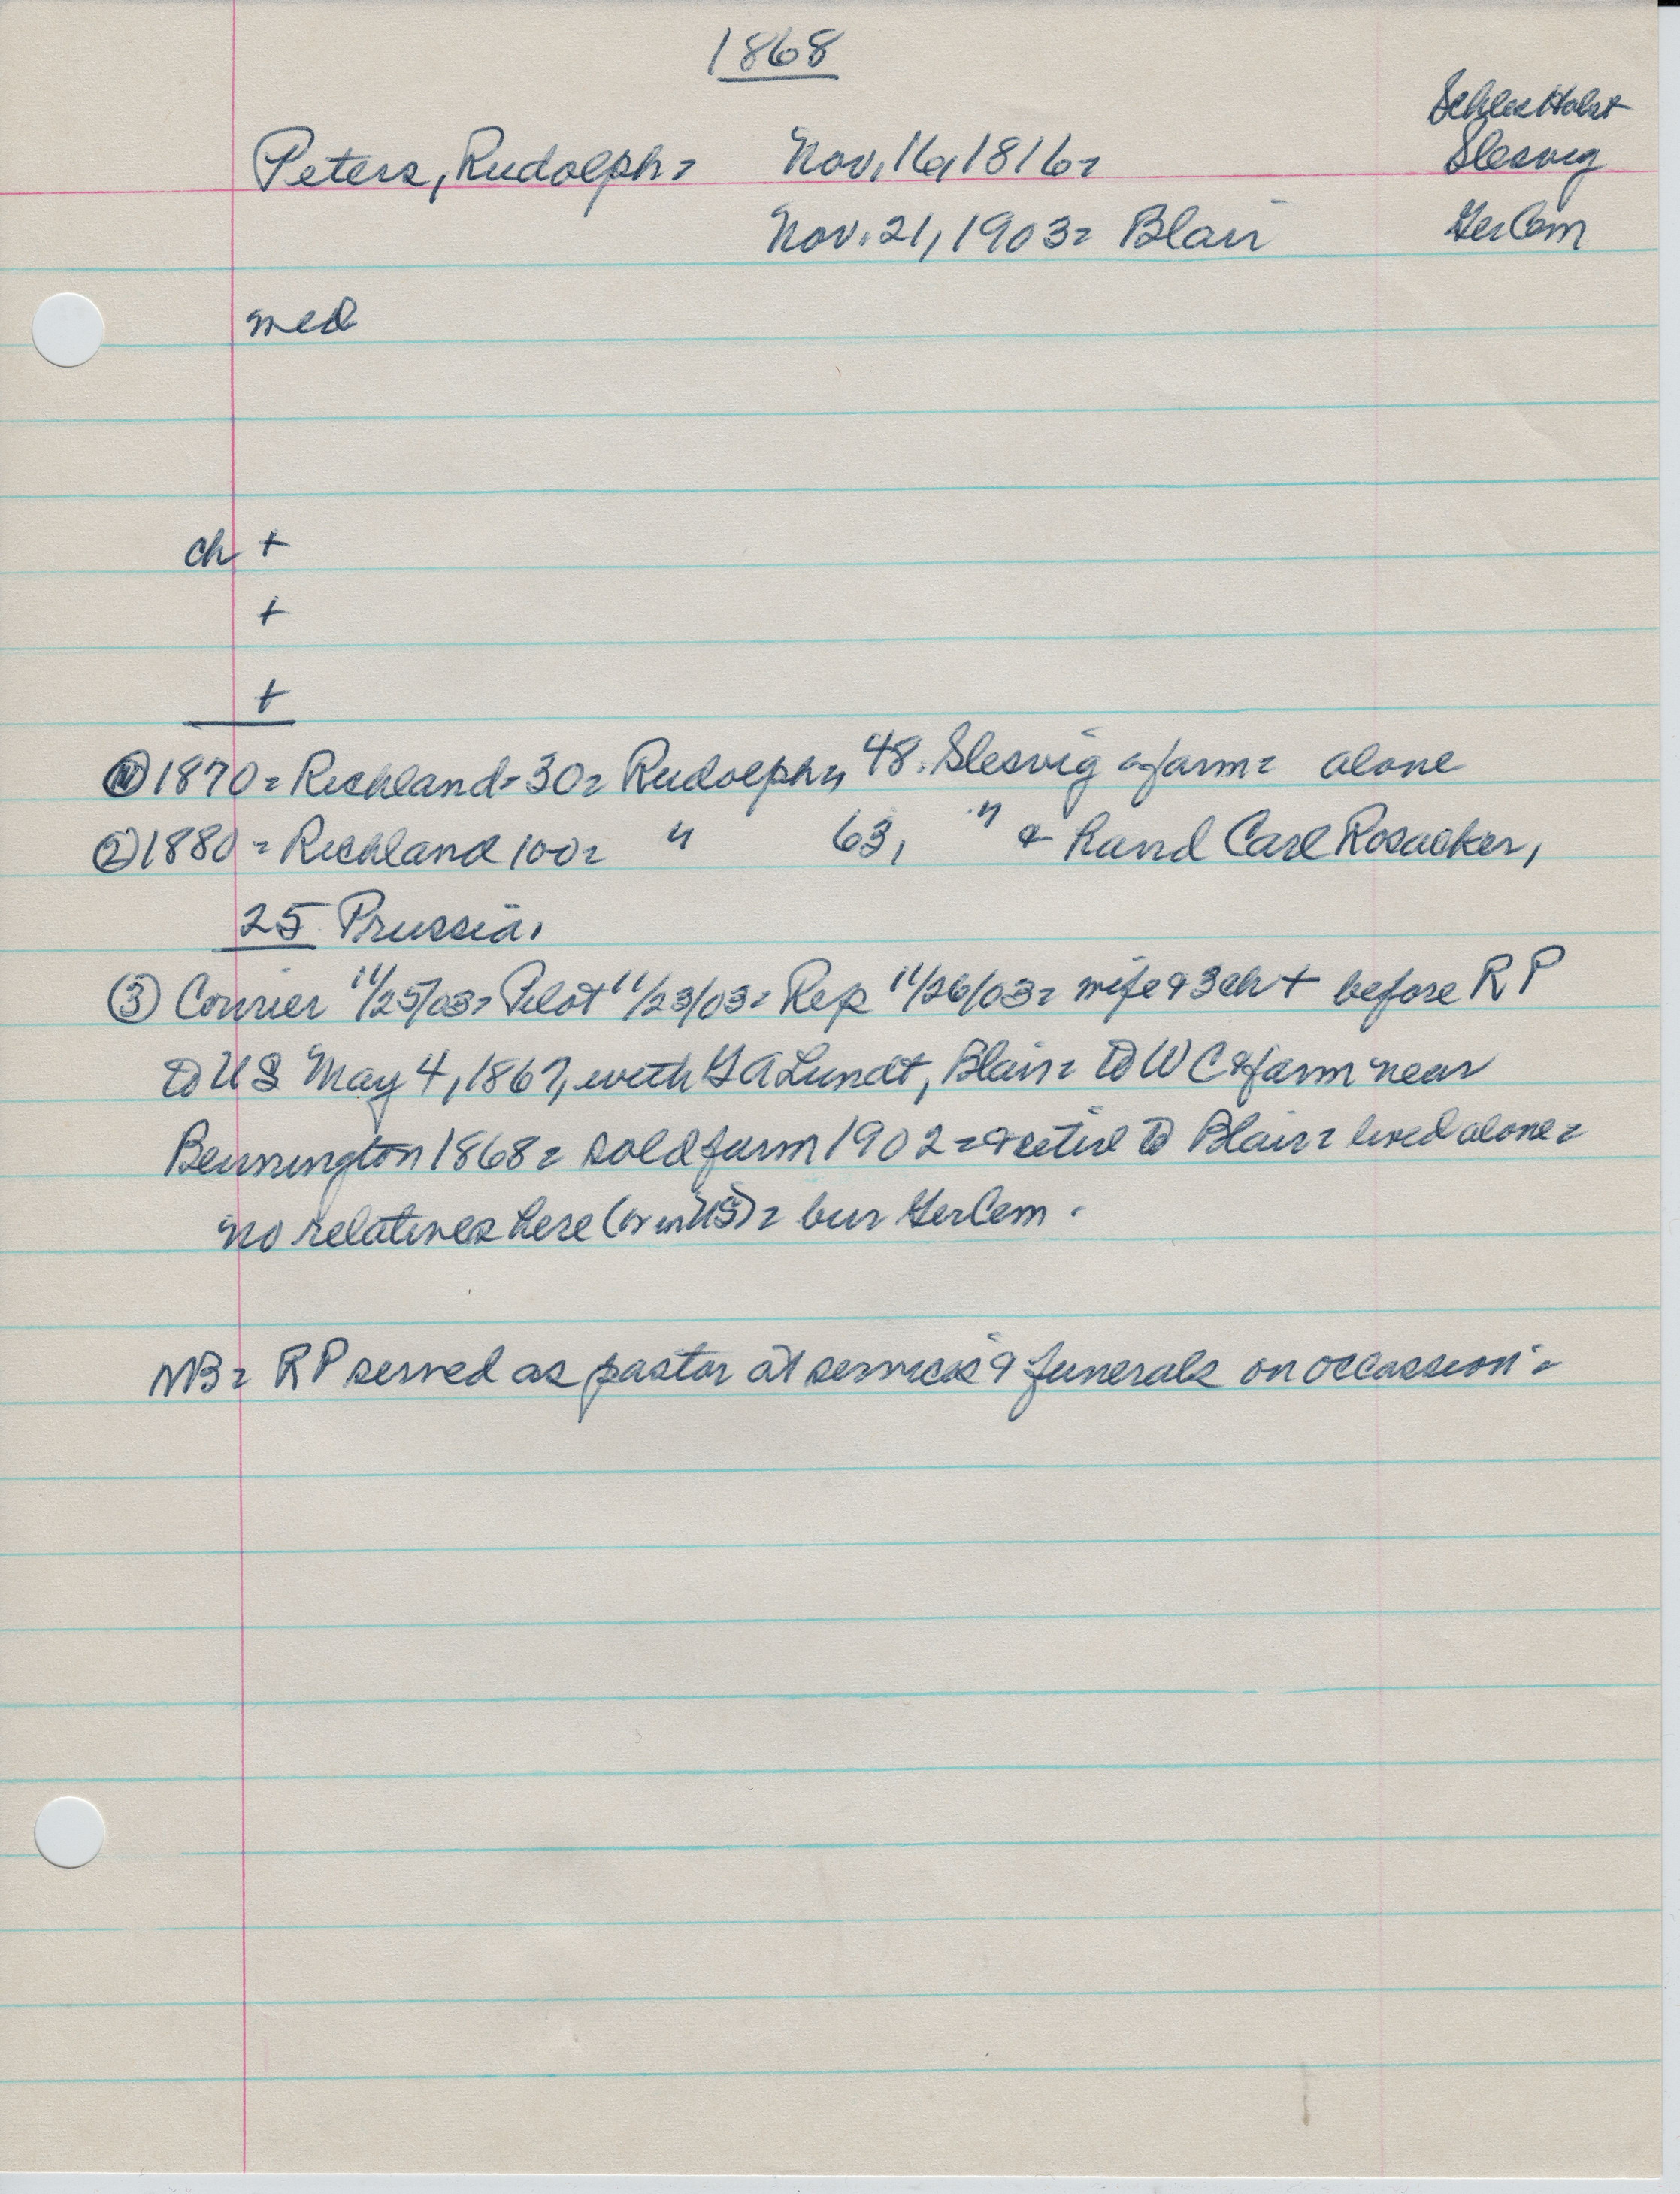 1868
Schles Holst
Peters, Rudolph = Nov. 16, 1816 = Slesvig
Nov. 21, 1903 = Blair Ger Cem
med
ch +
+
+
① 1870 = Richland - 30 = Rudolph, 48. Slesvig = farm = alone
② 1880 = Richland 100 = " 63, " & hand Carl Rosacker,
25 Prussia.
③ Courier 11/25/03 = Pilot 11/23/03 = Rep 11/26/03 = wife & 3 ch + before RP
to US May 4, 1867, with G A Lundt, Blair = to W C & farm near
Bennington 1868 = sold farm 1902 = & retire to Blair = lived alone =
no relatives here (or in US) = bur Ger Cem.
NB = RP served as pastor at services & funerals on occassion =